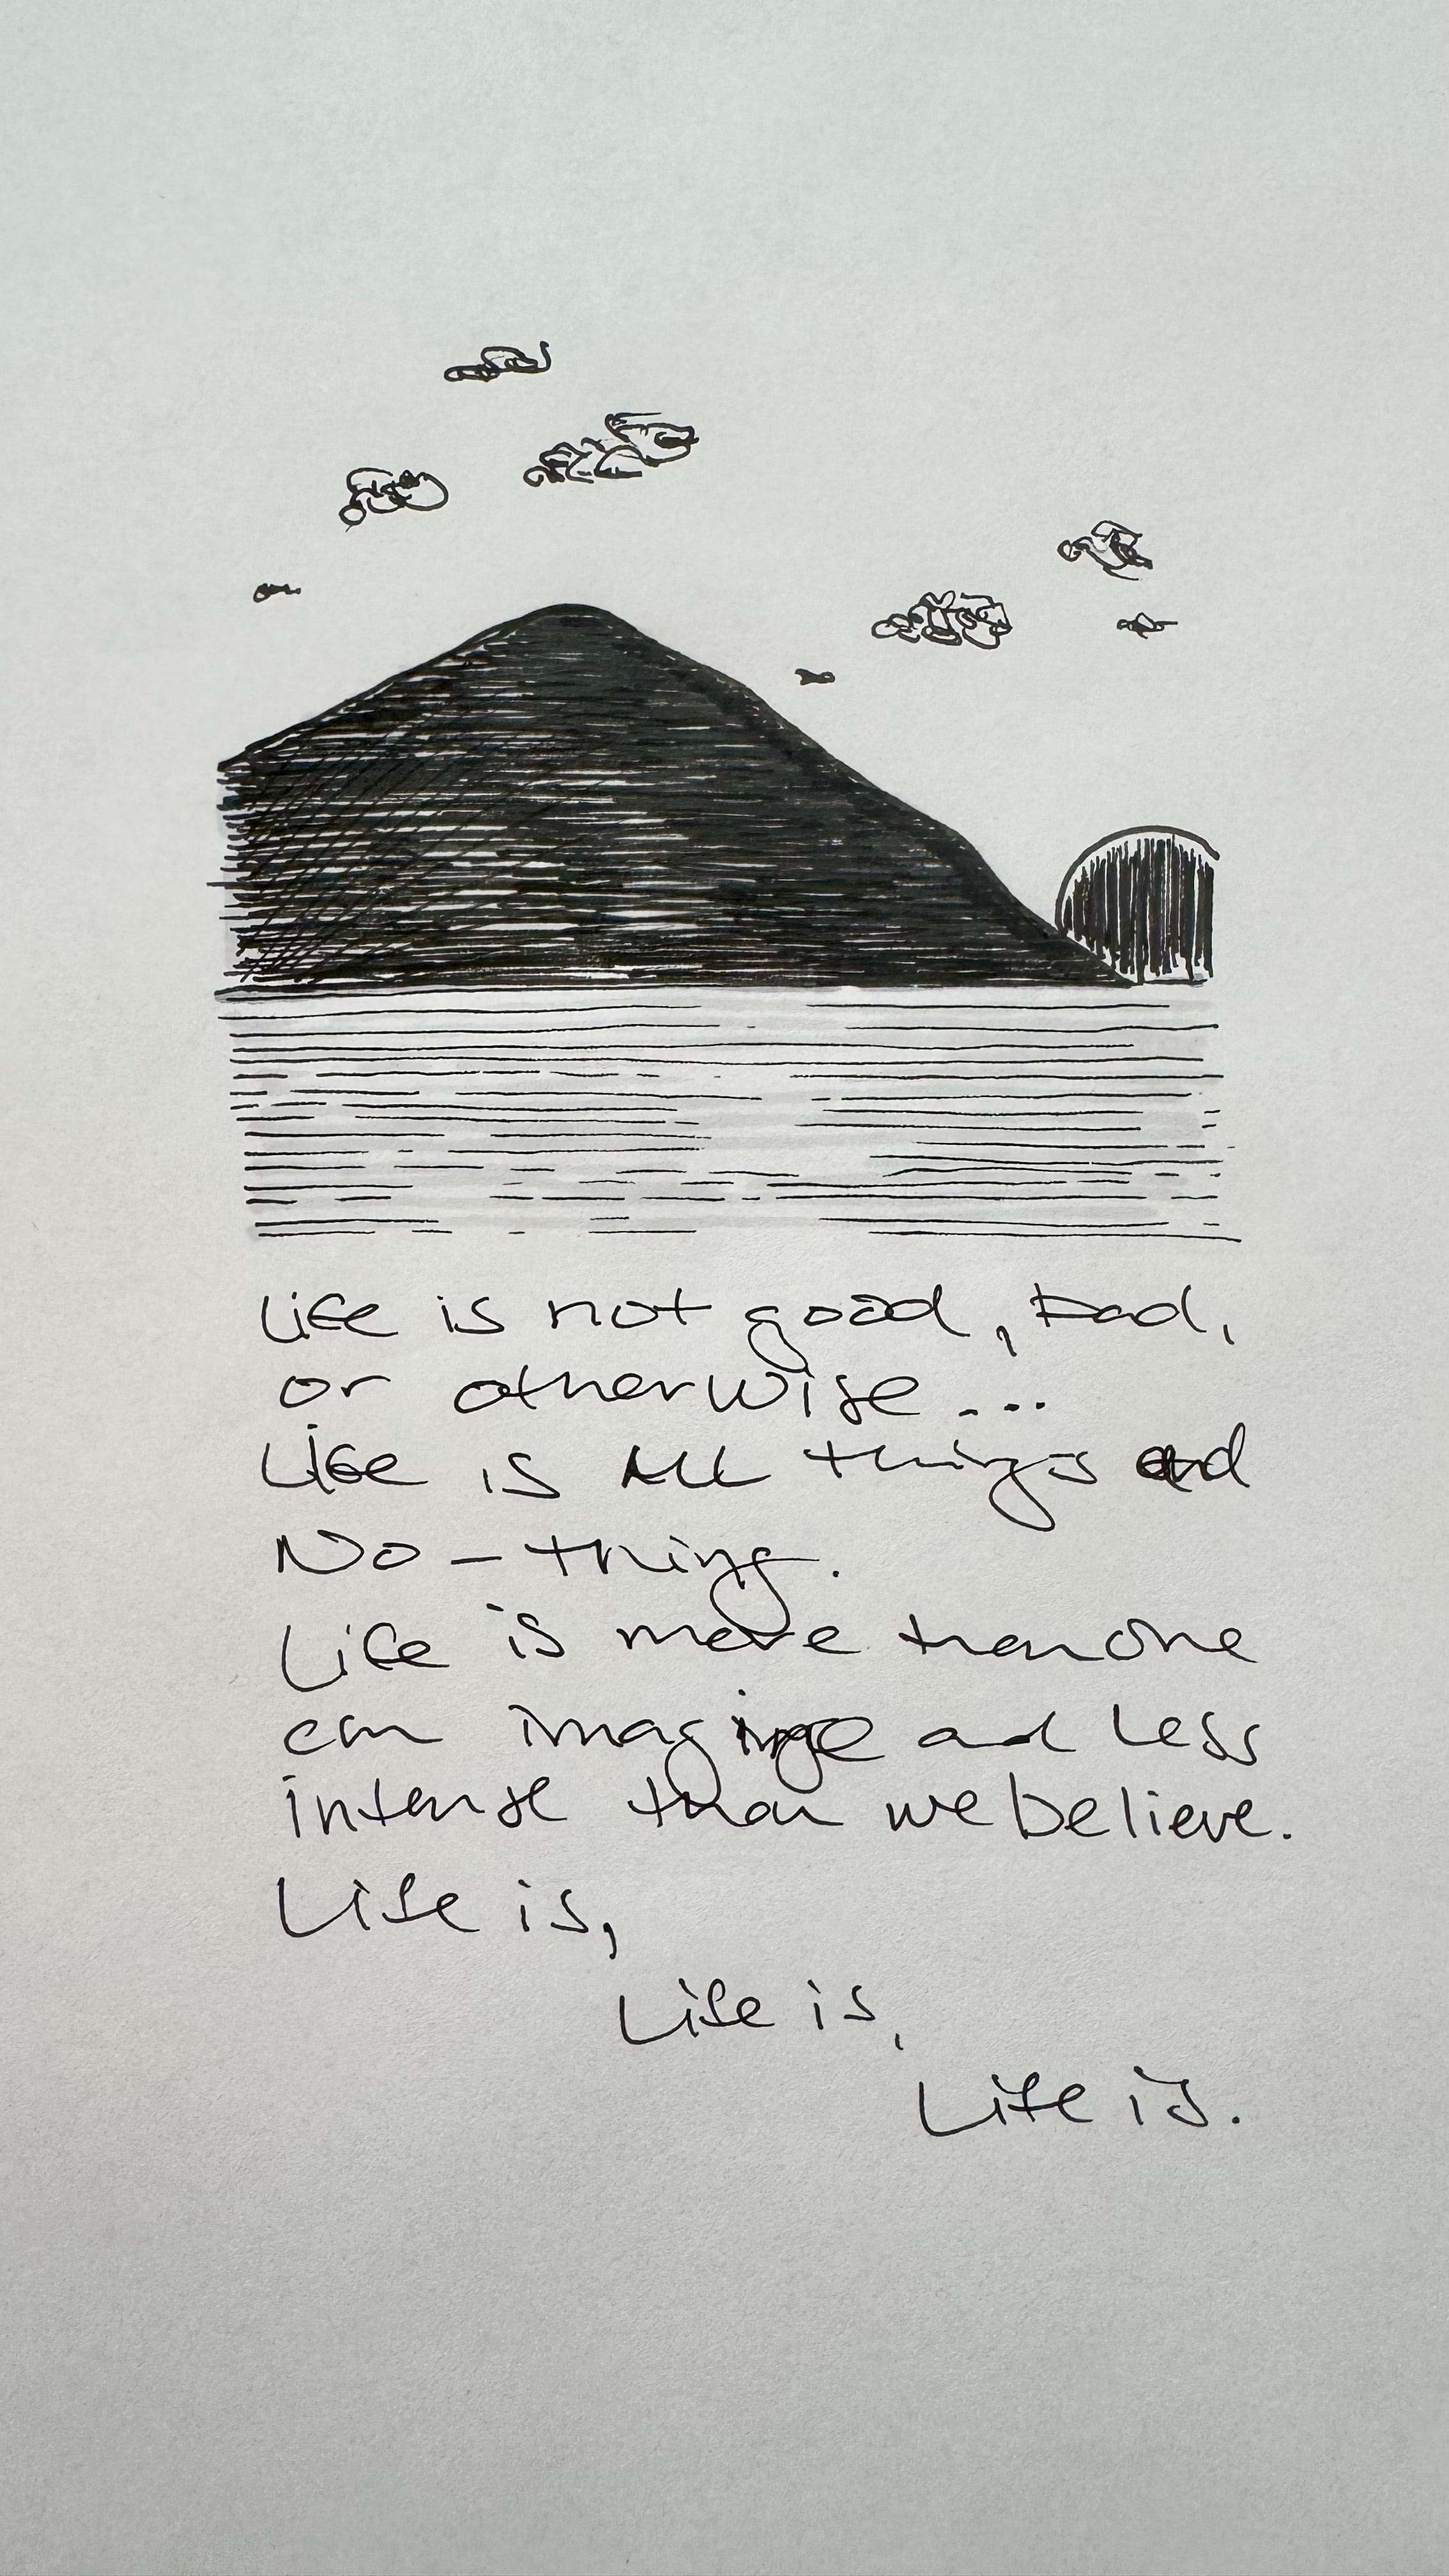 Life is not good, bad,
or otherwise...
Life is ALL things and
No-thing.
Life is more than one
can imagine and less
intense than we believe.
Life is,
Life is,
Life is.